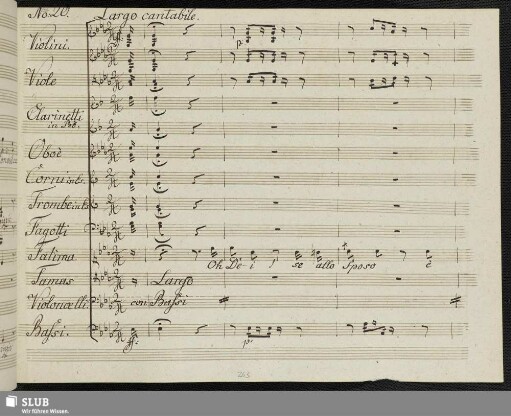 No: 20. Largo cantabile.
Violini.
p.
Viole
Clarinetti
in
Oboè
Corni in
Trombe in
Fagotti
Fatima
Oh Dei, se allo Sposo è
Tamas
Largo
Violoncelli.
con Bassi
Bassi.
ff.
p.
SLUB
Wir führen Wissen.